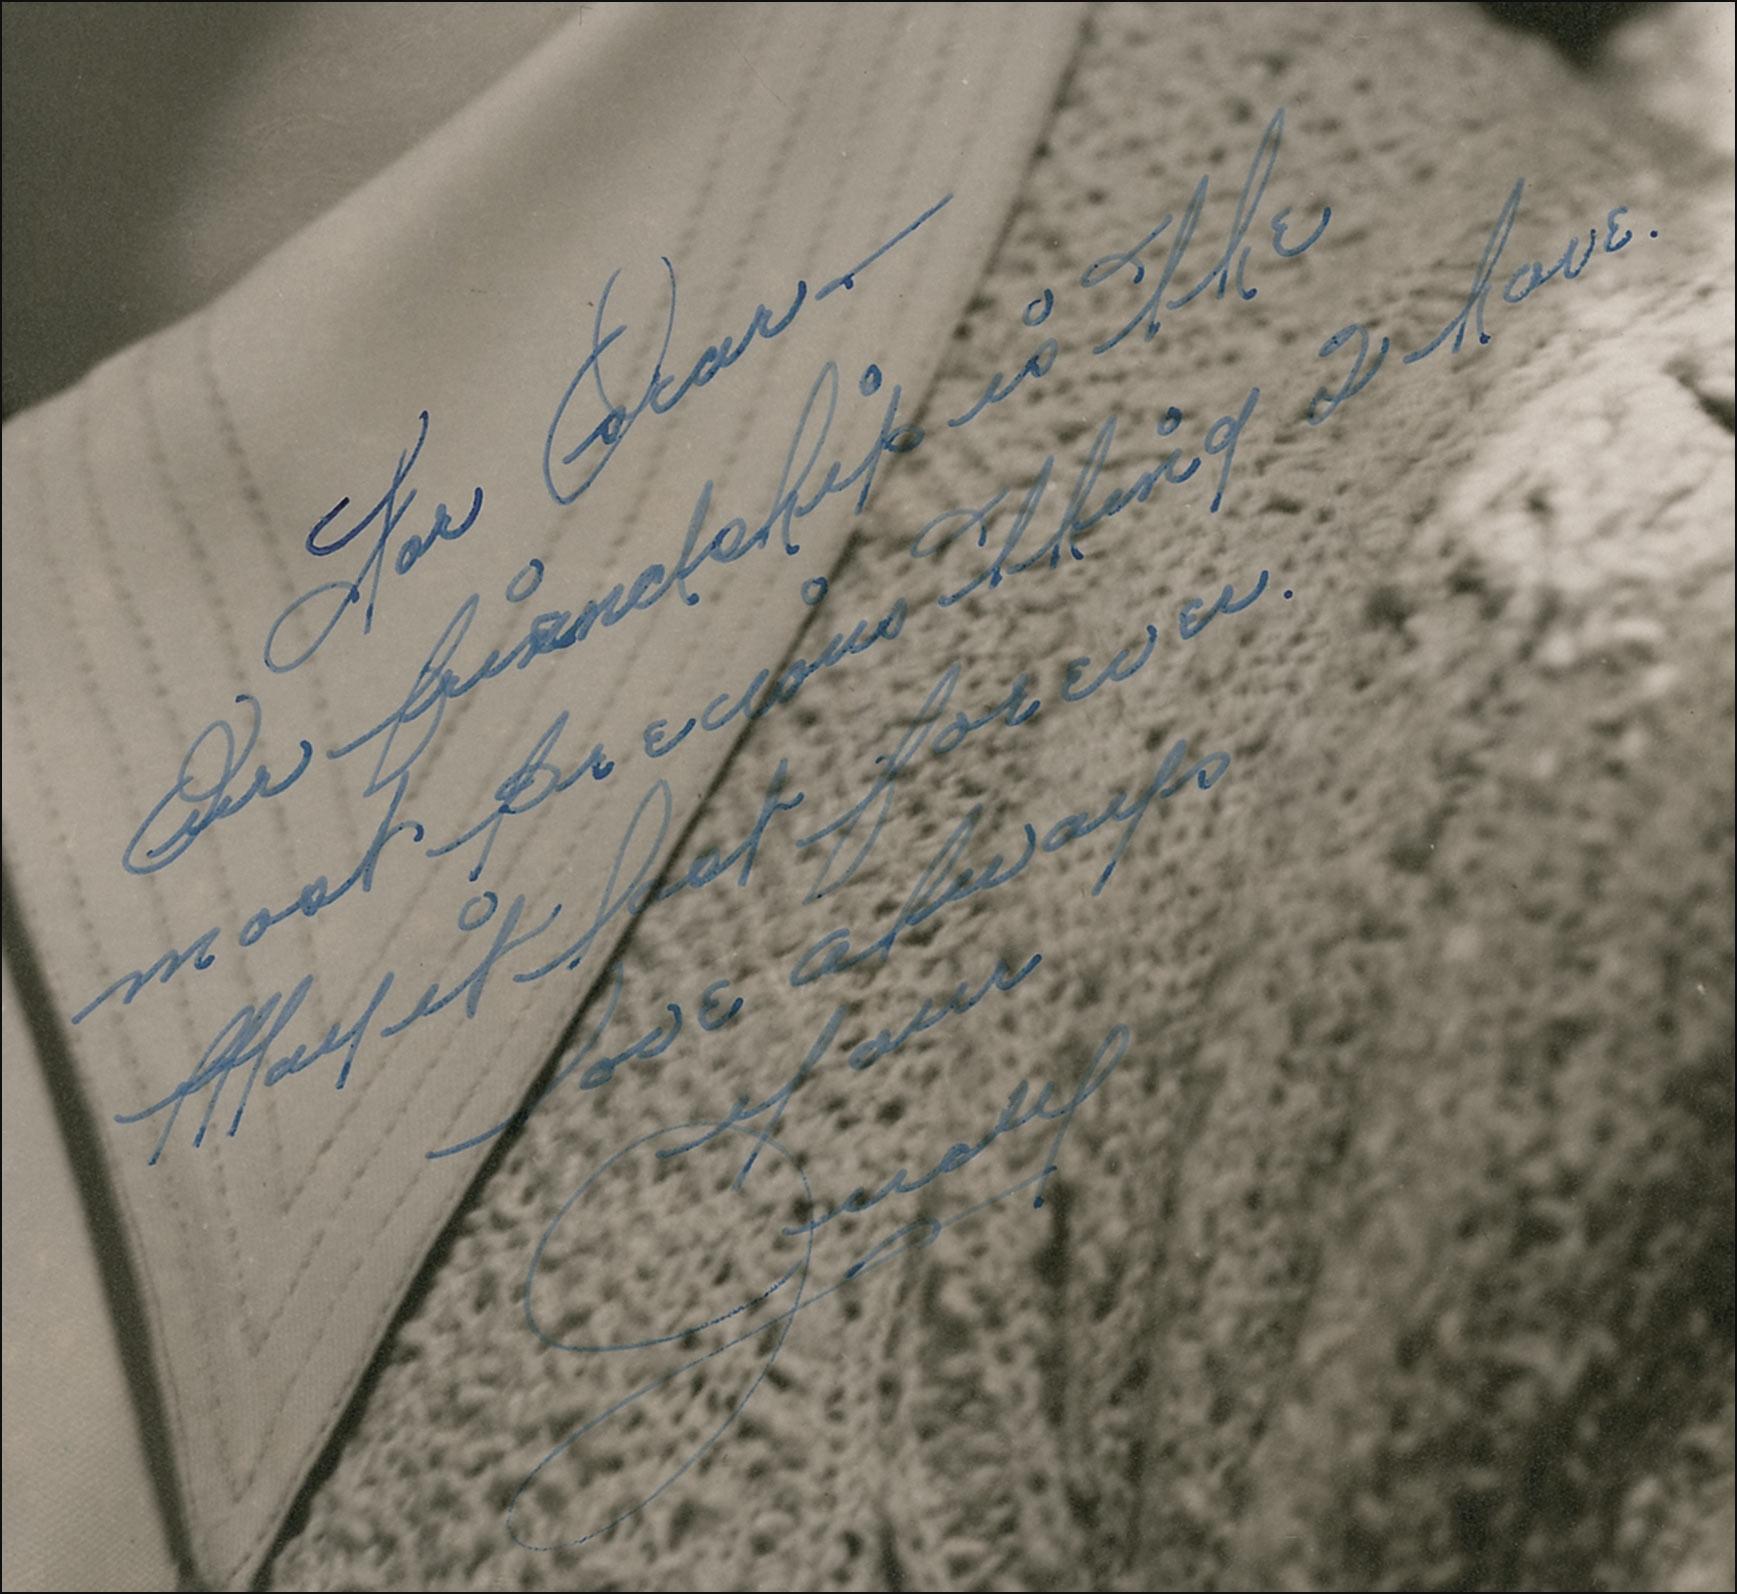 For Oscar—
Our friendship is the
most precious thing I have.
May it last forever.
Love always
Your
Judy